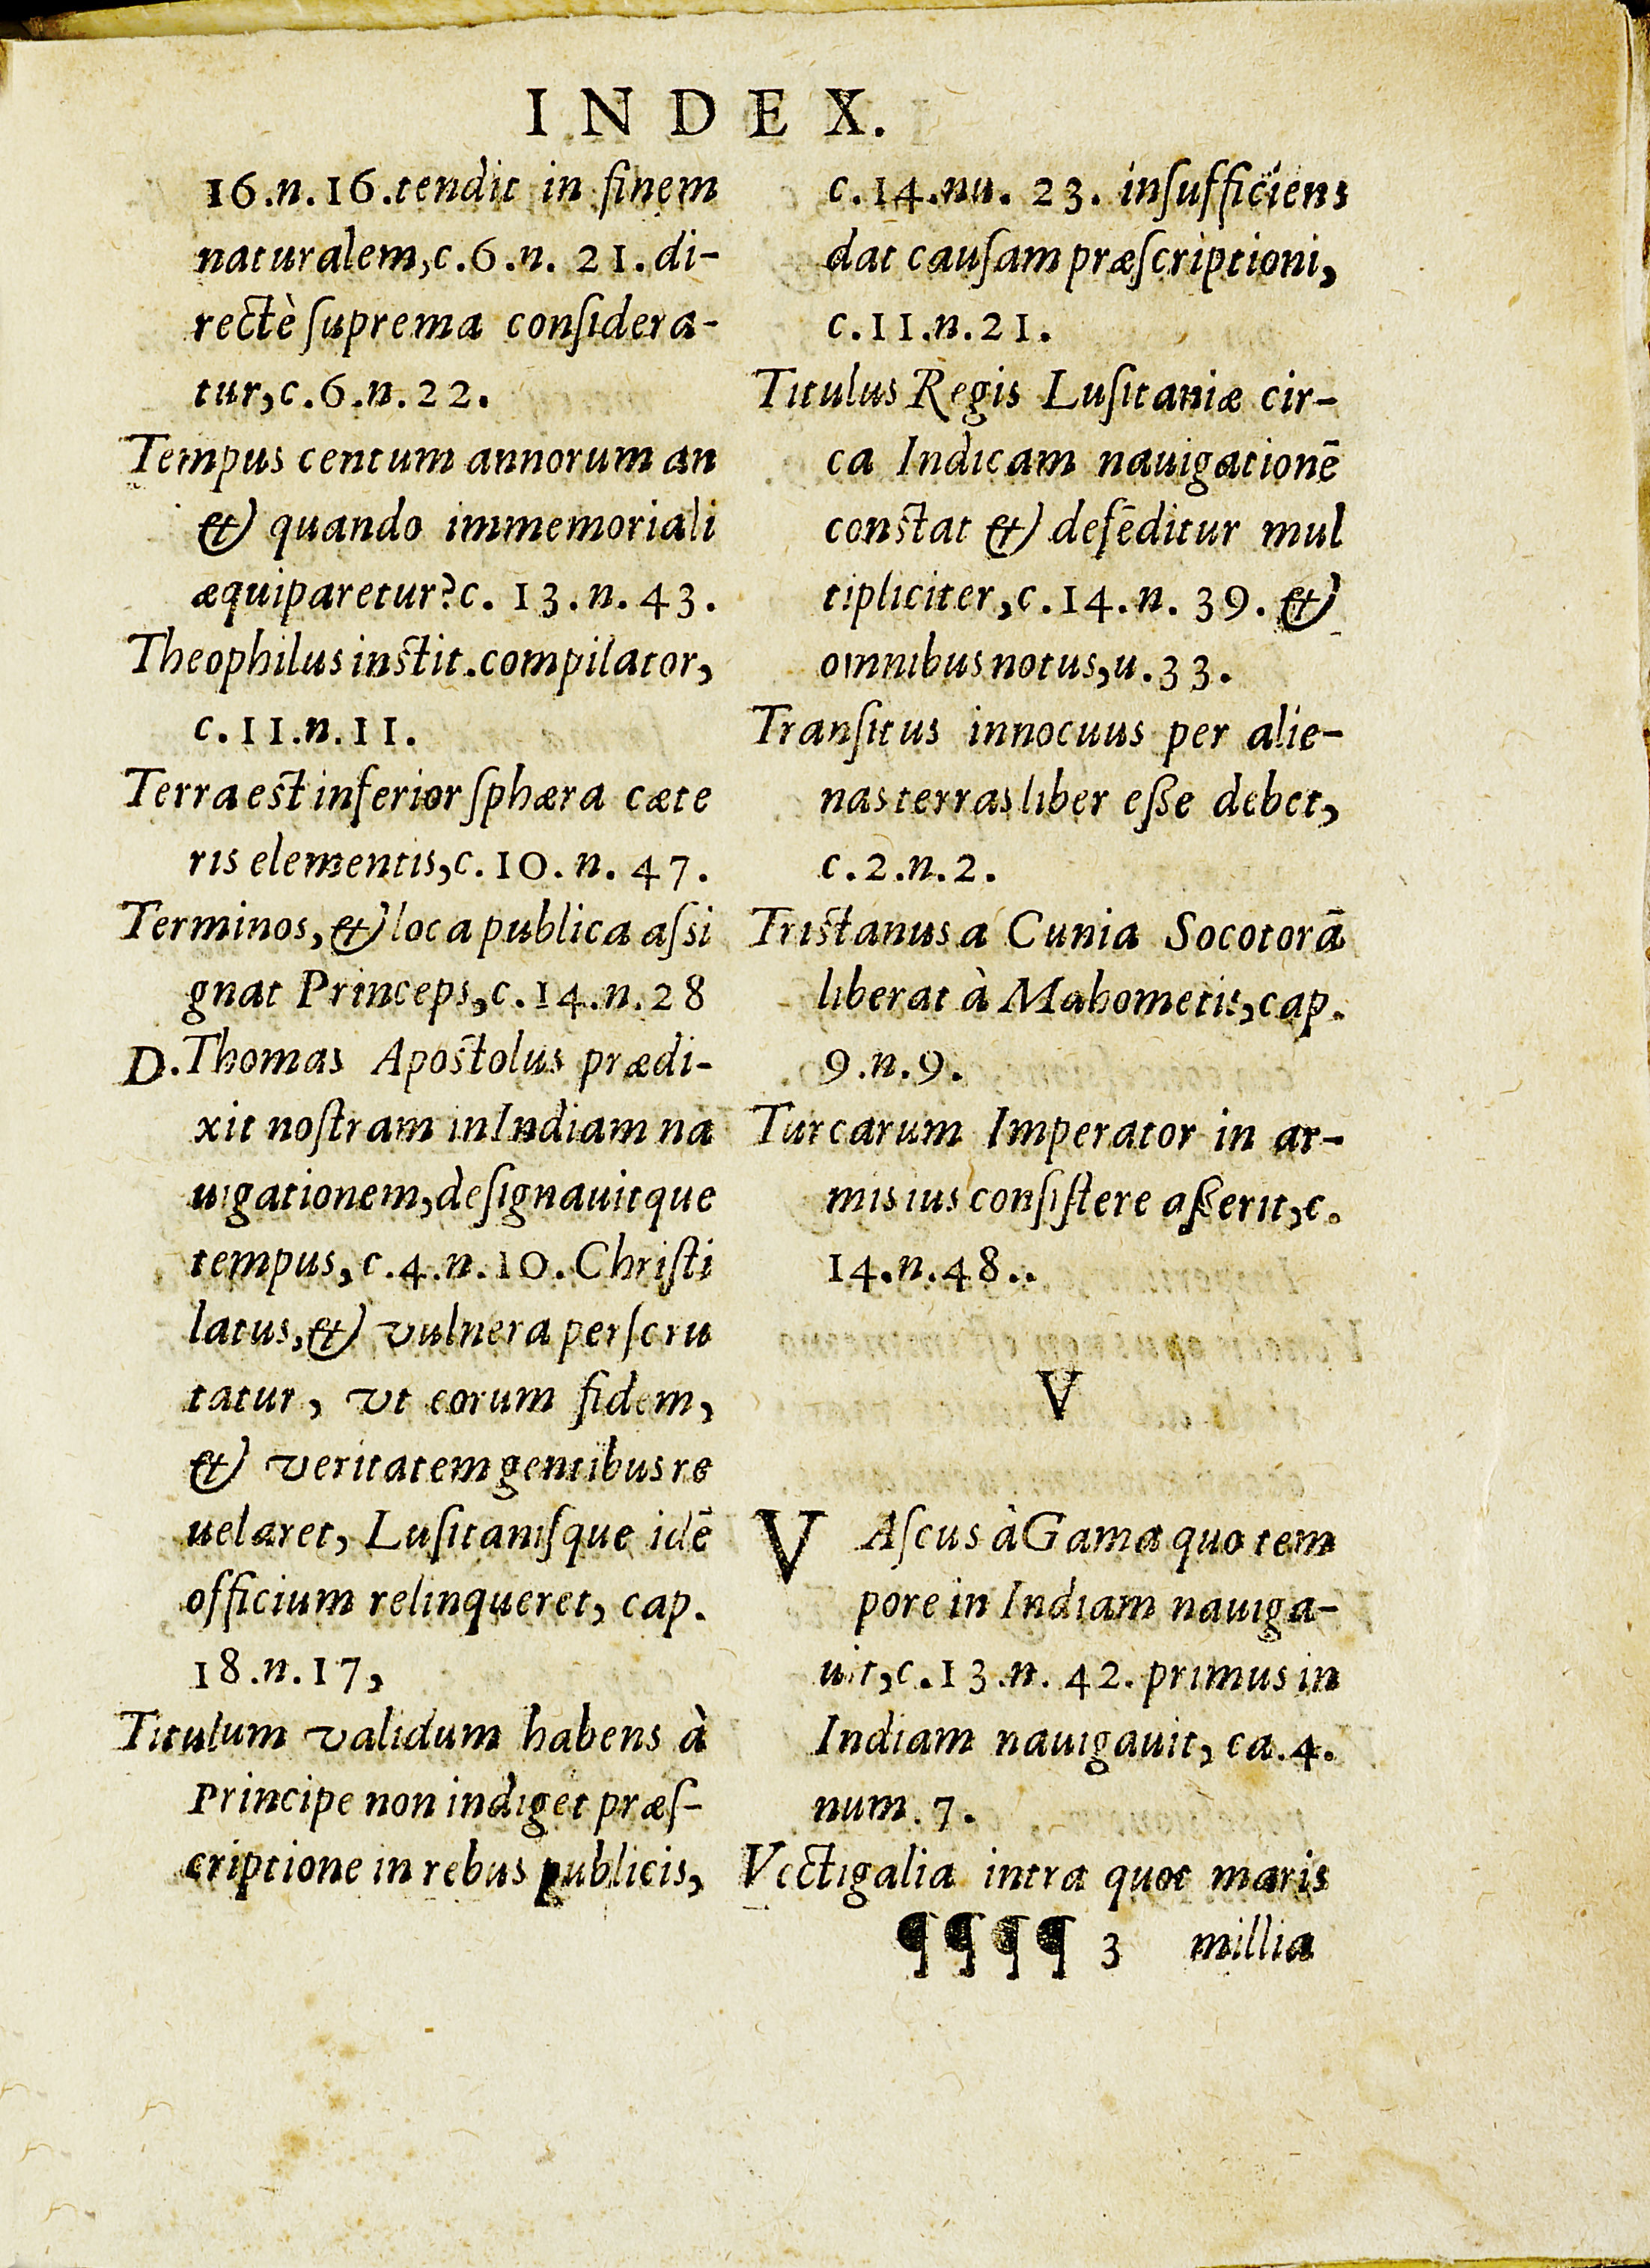 INDEX.
16.n.16.tendit in finem
naturalem,c.6.n. 21.di-
rectè ſuprema conſidera-
tur,c.6.n.22.
Tempus centum annorum an
& quando immemoriali
æquiparetur?c. 13.n.43.
Theophilus inſtit.compilator,
c.11.n.11.
Terra eſt inferior ſphæra cæte
ris elementis,c.10.n. 47.
Terminos, & loca publica aſsi
gnat Princeps,c.14.n.28
D.Thomas Apoſtolus prædi-
xit noſtram in Indiam na
uigationem,deſignauitque
tempus, c.4.n.10.Chriſti
latus,& vulnera perſcru
tatur, vt eorum fidem,
& veritatem gentibus re
uelaret, Luſitaniſque idē
officium relinqueret, cap.
18.n.17,
Titulum validum habens à
Principe non indiget præſ-
criptione in rebus publicis,
c.14.nu. 23. inſufficiens
dat cauſam præſcriptioni,
c.11.n.21.
Titulus Regis Luſitaniæ cir-
ca Indicam nauigationē
conſtat & defēditur mul
tipliciter,c.14.n. 39. &
omnibus notus,u.33.
Tranſitus innocuus per alie-
nas terras liber eſſe debet,
c.2.n.2.
Triſtanus a Cunia Socotorā
liberat à Mahometis,cap.
9.n.9.
Turcarum Imperator in ar-
mis ius conſiſtere aſſerit,c.
14.n.48..
V
VAſcus à Gama quo tem
pore in Indiam nauiga-
uit,c.13.n. 42. primus in
Indiam nauigauit, ca.4.
num.7.
Vectigalia intra quot maris
¶¶¶¶ 3 millia